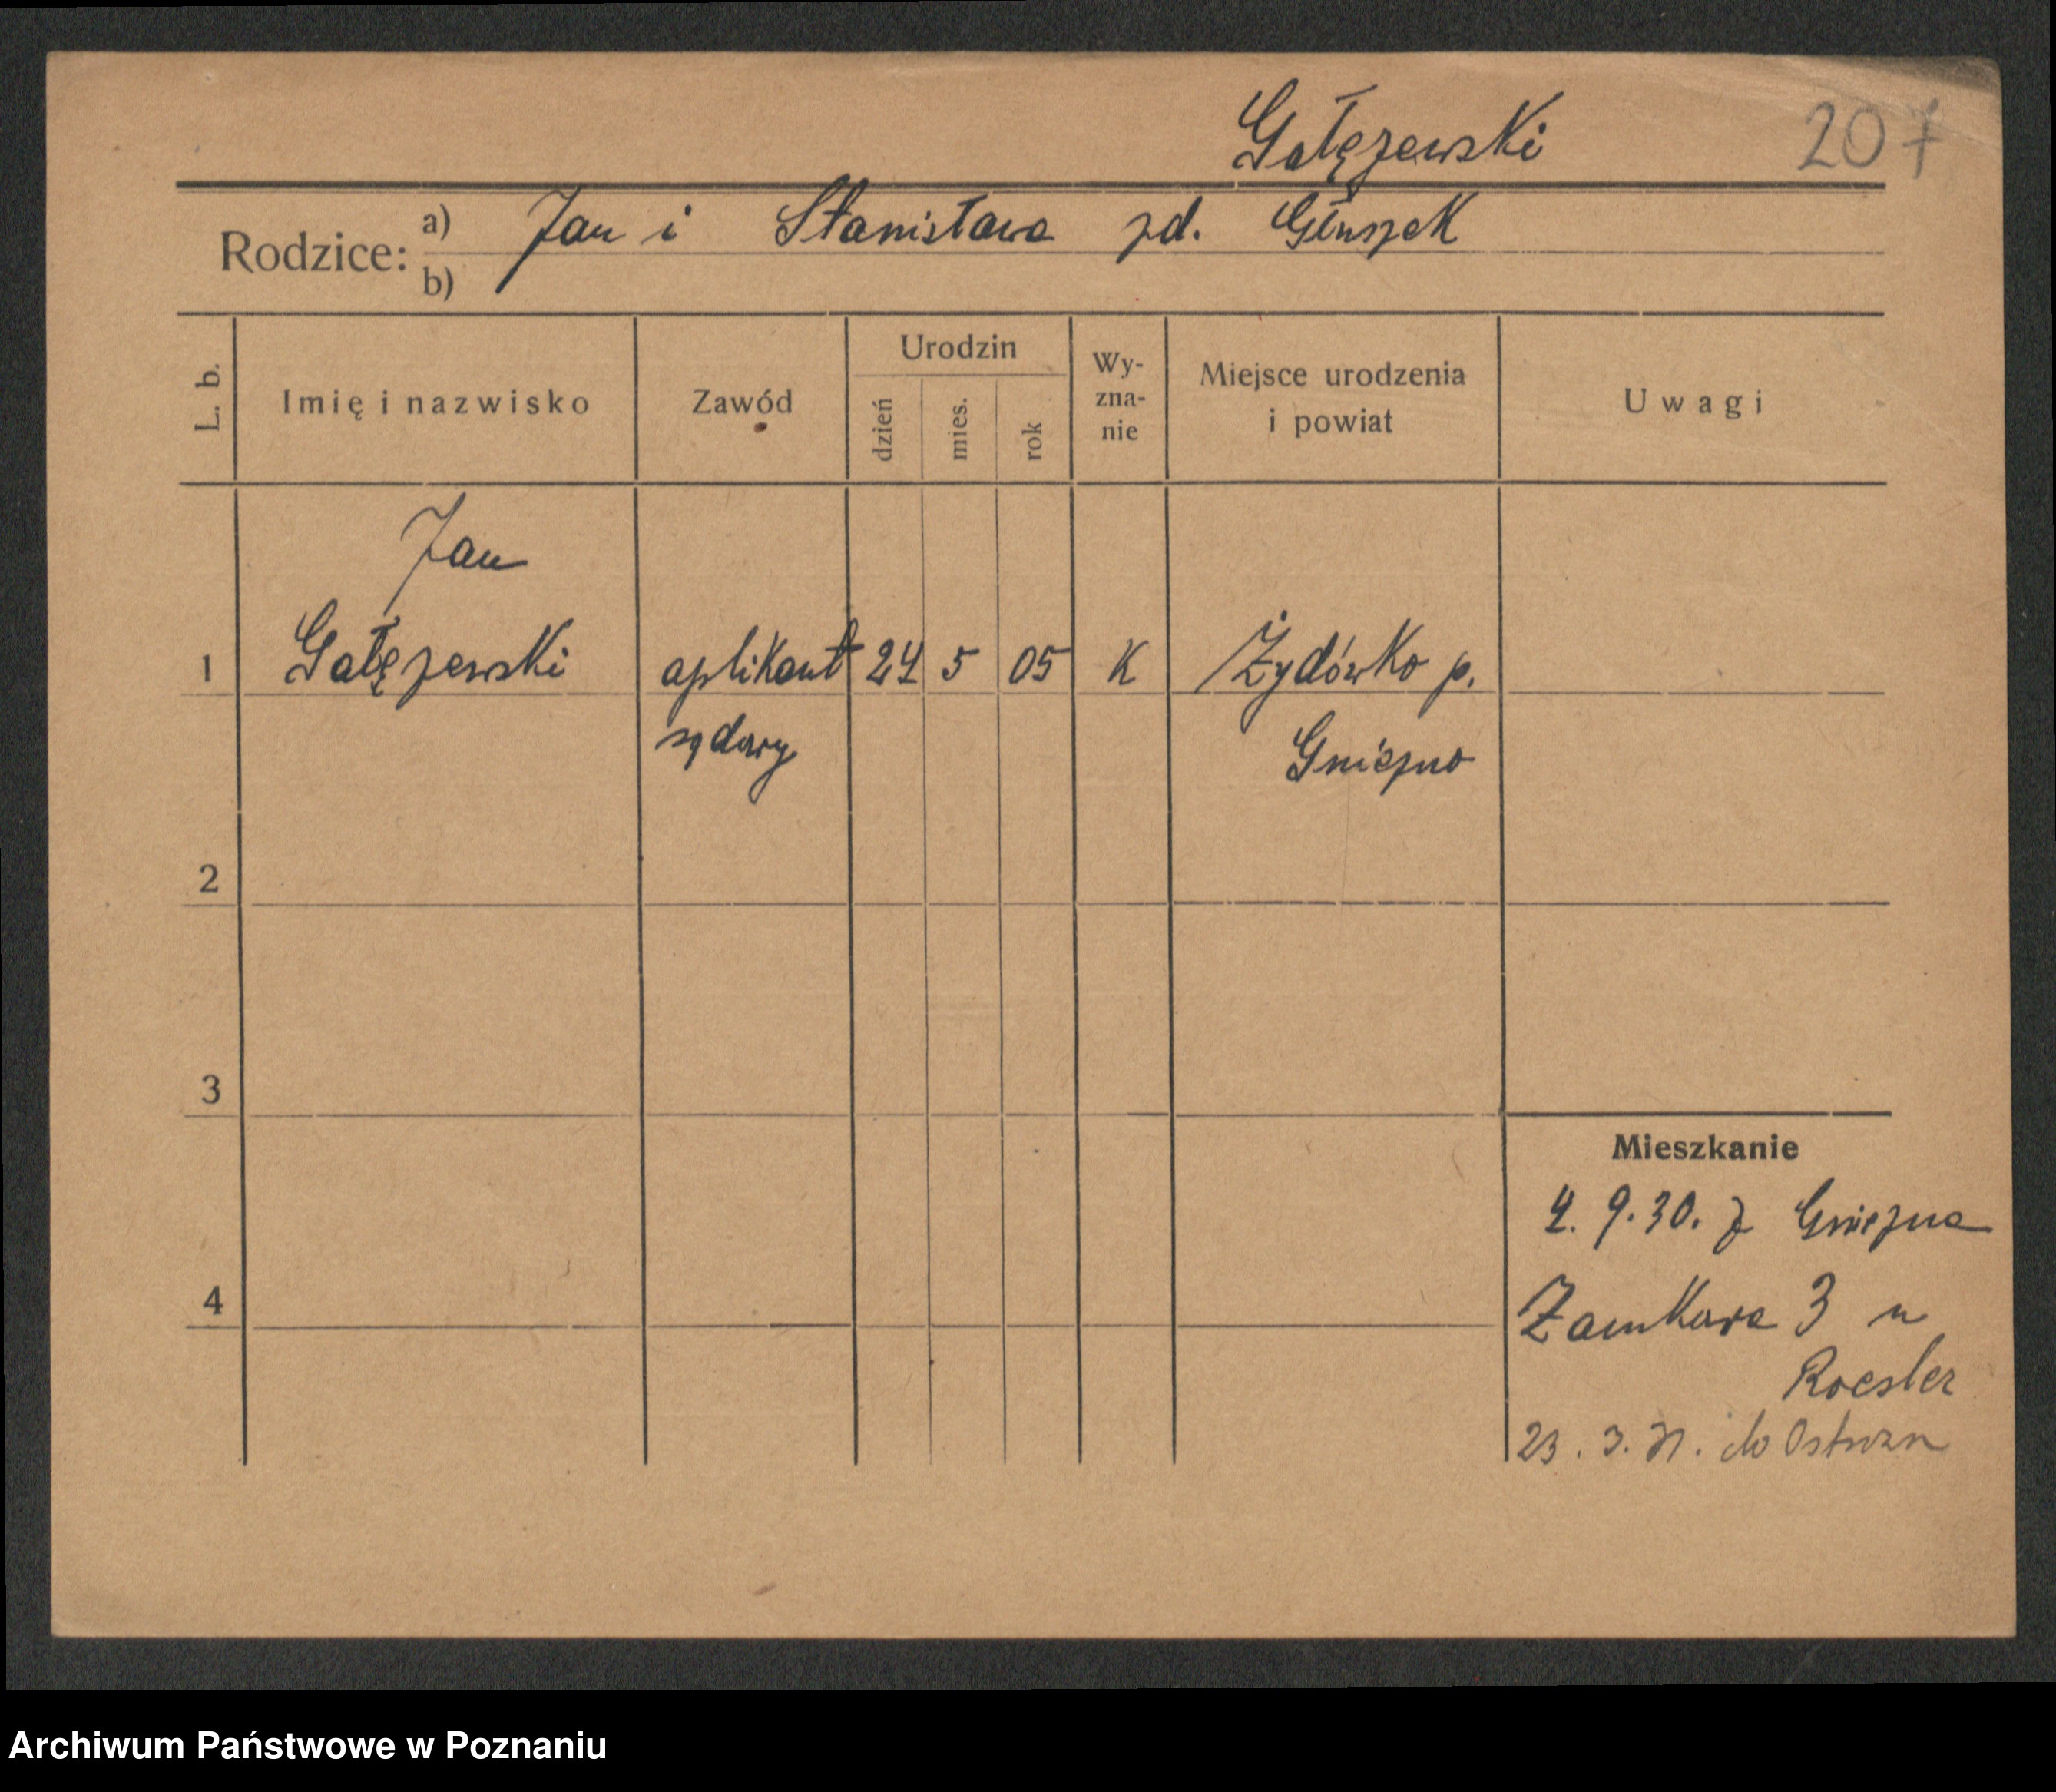 Gałęzewski 207
Rodzice: a) Jan i Stanisława zd. Głuszek
b)
L. b. Imię i nazwisko Zawód Urodzin dzień mies. rok Wy-zna-nie Miejsce urodzenia i powiat Uwagi
Jan
1 Gałęzewski aplikant 24 5 05 K Żydówko p.
sądowy Gniezno
2
3
Mieszkanie
4. 9. 30. z Gniezna
4 Zamkowa 3 u
Roesler
23. 3. 31. do Ostrowa
Archiwum Państwowe w Poznaniu